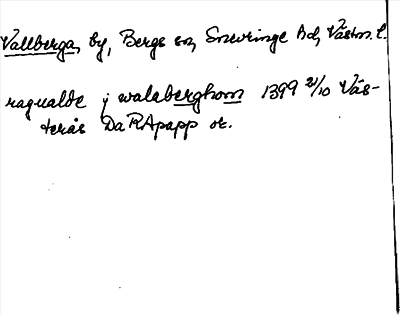 Vallberga, by, Bergs sn, Snevringe hd, Västm. l.
ragualde j walaberghom 1399 21/10 Väs-
terås Da RApapp or.